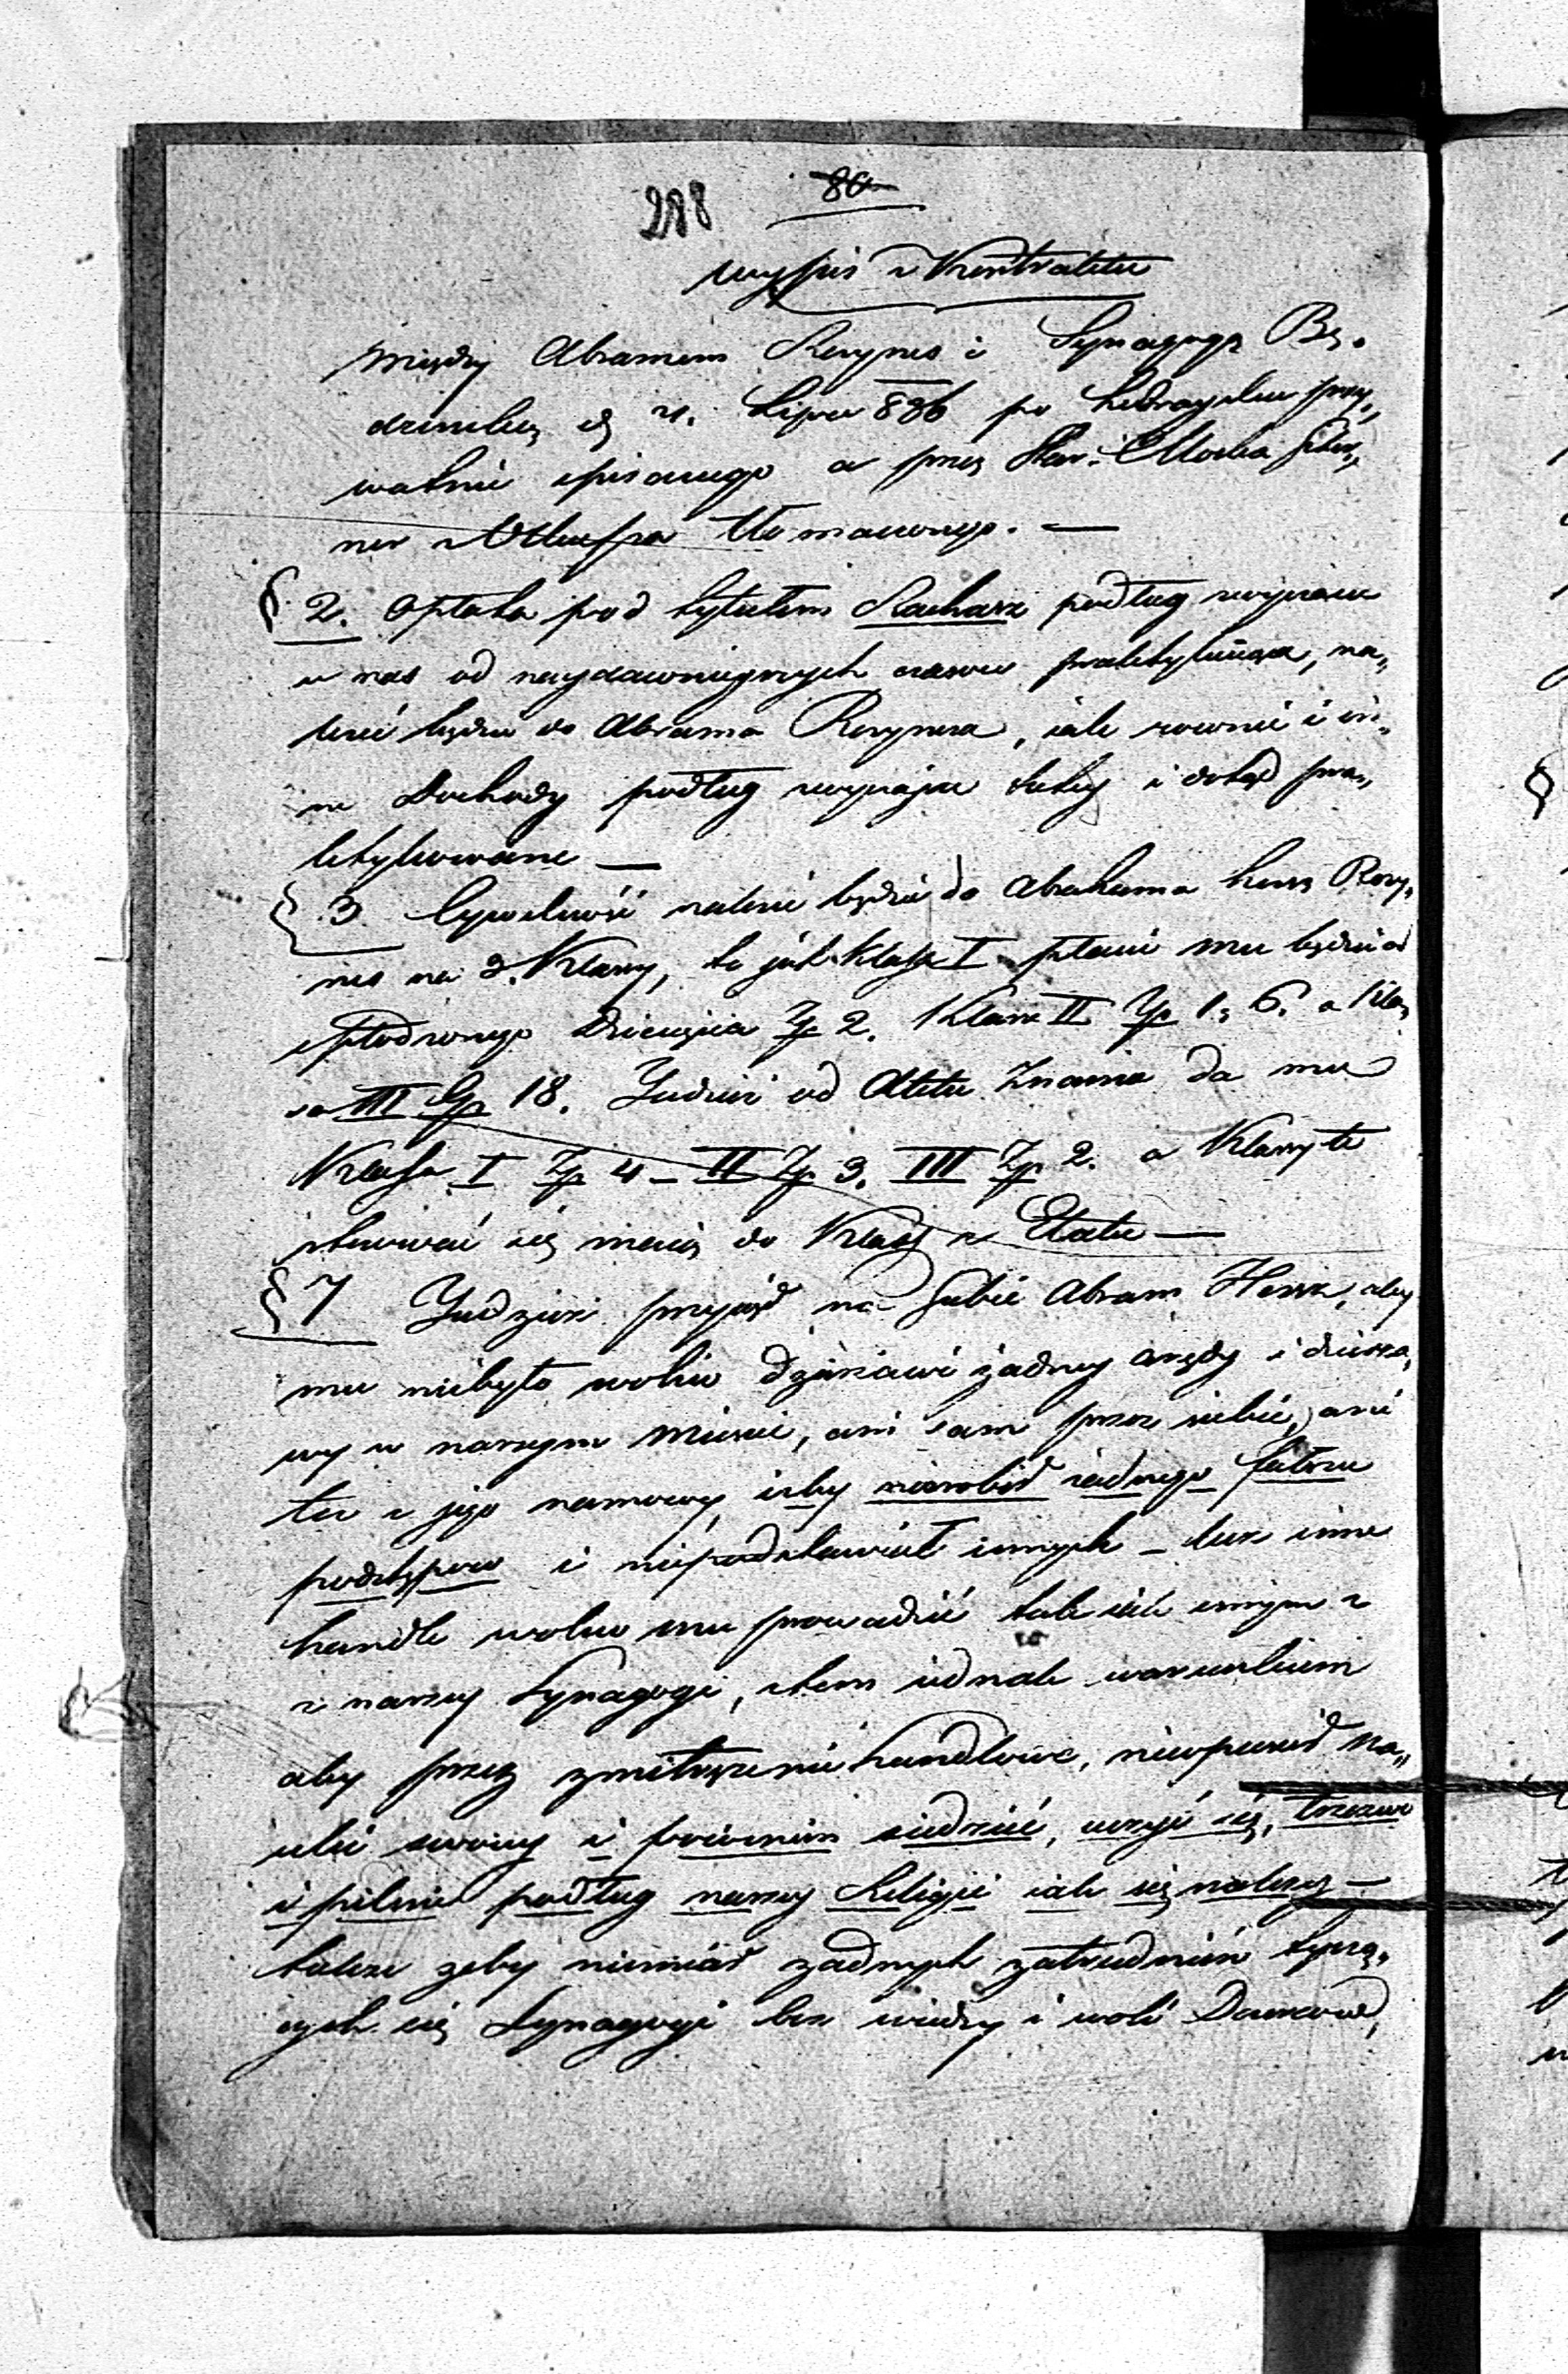 288 80
Wypis z Kontraktu
Między Abramem Rozynes i Synagogą Bę„
dzińską d. 4. Lipca 836 po hebraysku pry„
watnie spisanego a przez Star:
ner z Olkusza tłomaczonego. —
§ 2. Opłata pod tytułem Rachasz podług zwyczaiu
u nas od naydawnieyszych czasow praktykuiąca, na„
leżeć będzie do Abrama Rozynesa, iako rownie i in„
ne Dochody podług zwyczaju tutey i dotąd pra„
ktykowane —
§ 3. Cywilność należeć będzie do Abrahama Hersz Rozy„
nes na 3. Klassy, to jest Klassa I płacić mu będzie od
spłodzonego Dziecięcia Zp 2. Klassa II Zp 1. 6. a Klas„
sa III Gp 18. Judzież od Aktu Znania da mu
Klassa I Zp 4 — II Zp 3. III Zp 2. a Klassy te
stosować się maią do Klass z Etatu —
§ 7 Judzież przyjął na siebie Abram Hersz, aby
mu niebyło wolno dzierżawić żadney arędy i dzierża„
wy w naszym Mieście, ani sam przez siebie, ani
też z jego namowy, iżby nierobił żadnego fałszu
podstępow i niepodstawiał innych — lecz inne
handle wolno mu prowadzić tak iak innym z
z naszey Synagogi, z tem iednak warunkiem
aby przez zmitrężenie handlowe, nieopuścił na„
uki swoiey i powinien siedzieć, uczyć się, trzeźwo
i pilnie podług naszey Religii iak się należy —
także żeby niemiał żadnych zatrudnień tyczą„
cych się Synagogi bez wiedzy i woli Dozorow,